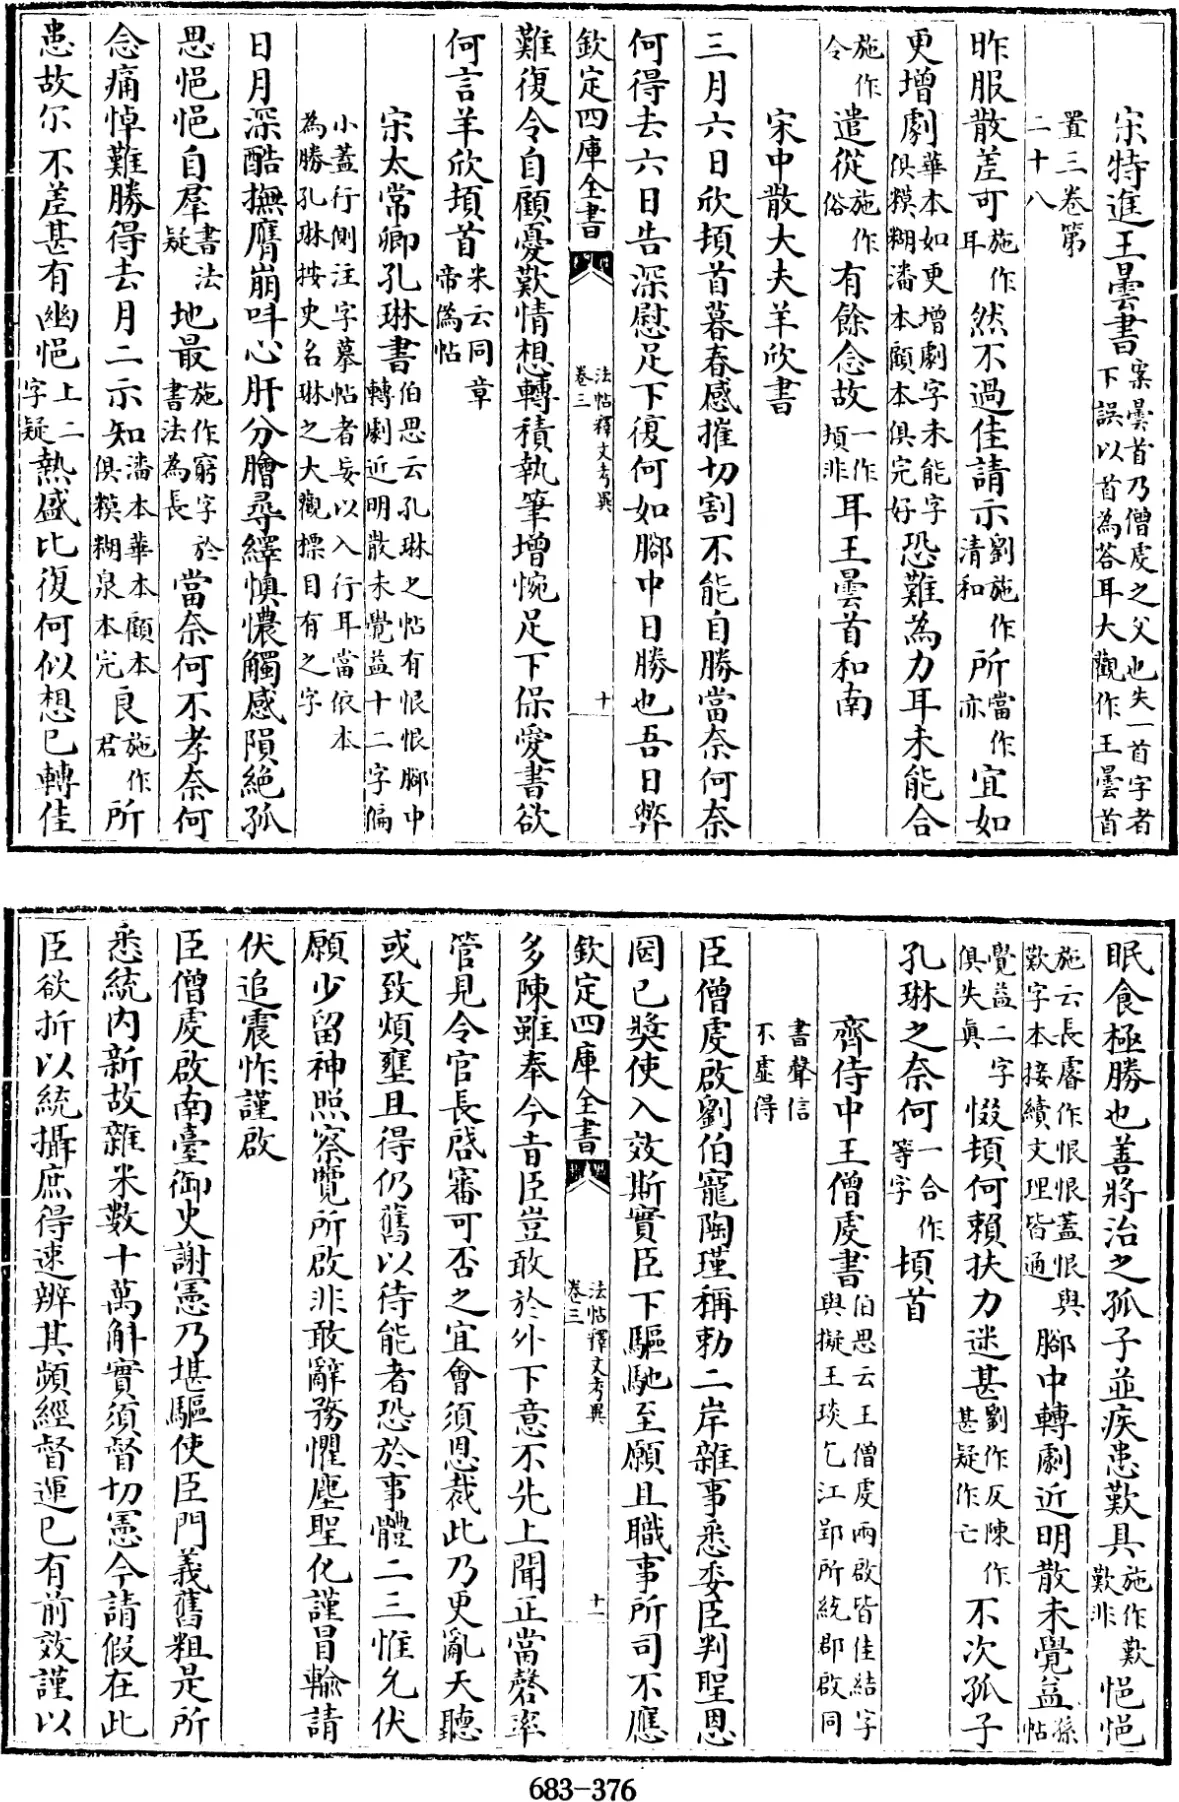 宋特進王曇書案曇首乃僧虔之父也失一首字者下誤以首為荅耳大觀作王曇首
置三卷第二十八
昨服散差可施作耳然不過佳請示劉施作清和所當作亦宜如
更增劇華本如更增劇字未能字俱糢糊潘本顧本俱完好恐難為力耳未能合
施作令遣從施作俗有餘念故一作頃非耳王曇首和南
宋中散大夫羊欣書
三月六日欣頃首暮春感摧切割不能自勝當奈何奈
何得去六日告深慰足下復何如腳中日勝也吾日弊
欽定四庫全書 法帖釋文考異 卷三 十
難復令自顧憂歎情想轉積執筆增惋足下保愛書欲
何言羊欣頃首米云同章帝偽帖
宋太常卿孔琳書伯思云孔琳之帖有恨恨腳中轉劇近明散未覺益十二字偏
小蓋行側注字摹帖者妄以入行耳當依本為勝孔琳按史名琳之大觀標目有之字
日月深酷撫膺崩叫心肝分膾尋繹懊憹觸感隕絶孤
思悒悒自羣書法疑地最施作窮字於書法為長當奈何不孝奈何
念痛悼難勝得去月二示知潘本華本顧本俱糢糊泉本完良施作君所
患故尔不差甚有幽悒上二字疑熱盛比復何似想已轉佳
眠食極勝也善將治之孤子並疾患歎具施作歎歎非悒悒
施云長睿作恨恨蓋恨與歎字本接續文理皆通腳中轉劇近明散未覺益孫帖
覺益二字俱失真惙頃何賴扶力迷甚劉作反陳作甚疑作亡不次孤子
孔琳之奈何一合作等字頃首
齊侍中王僧虔書伯思云王僧虔兩啟皆佳結字與擬王琰乞江郢所統郡啟同
書聲信不虛得
臣僧虔啟劉伯寵陶瑾稱勅二岸雜事悉委臣判聖恩
罔已奬使入效斯實臣下驅馳至願且職事所司不應
欽定四庫全書 法帖釋文考異 卷三 十一
多陳雖奉今旨臣豈敢於外下意不先上聞正當罄率
管見令官長啓審可否之宜會須恩裁此乃更亂天聽
或致煩壅且得仍舊以待能者恐於事體二三惟允伏
願少留神照察覽所啟非敢辭務懼塵聖化謹冒輸請
伏追震怍謹啟
臣僧虔啟南臺御史謝憲乃堪驅使臣門義舊粗是所
悉統内新故雜米數十萬斛實須督切憲今請假在此
臣欲折以統攝庶得速辦其頻經督運已有前效謹以
683-376